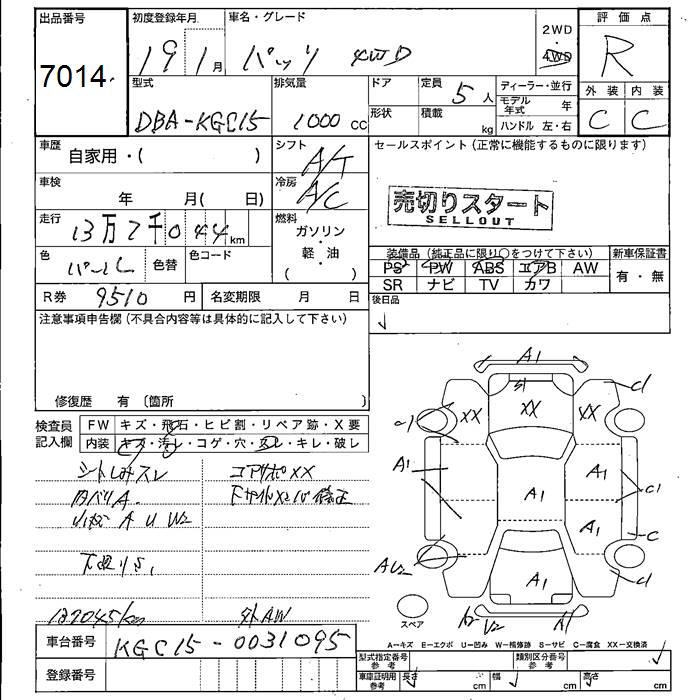 出品番号
7014
初度登録年月
19 1月
車名・グレード
パッソ 4WD
2WD
4WD
評価点
R
型式
DBA-KGC15
排気量
1000 cc
ドア
定員
5人
ディーラー・並行
モデル年式 年
ハンドル 左・右
形状
積載 kg
外装
内装
C
C
車歴
自家用・( )
シフト
A/T
セールスポイント (正常に機能するものに限ります)
車検
年 月( 日)
冷房
A/C
売切りスタート
SELLOUT
走行
13万7千044km
燃料
ガソリン・軽・油
( )
色
パール
色替
色コード
装備品 (純正品に限り○をつけて下さい)
新車保証書
PS PW ABS エアB AW
SR ナビ TV カワ
有・無
R券 9510 円
名変期限 月 日
後日品
注意事項申告欄 (不具合内容等は具体的に記入して下さい)
修復歴 有 〔箇所 〕
検査員記入欄
FW キズ・飛石・ヒビ割・リペア跡・X要
内装 キズ・汚レ・コゲ・穴・スレ・キレ・破レ
シートしみスレ
コアサポXX
内ハリA
A U W2
下廻りS1
137045km
外AW
車台番号
KGC15-0031095
登録番号
A1
S1
XX
XX
XX
A1
A1
A1
A1
A1
C1
C
AU2
A2
U2
A1
スペア
A=キズ E=エクボ U=凹み W=補修跡 S=サビ C=腐食 XX=交換済
型式指定番号 参考
類別区分番号 参考
車庫証明用 参考
長さ cm
幅 cm
高さ cm